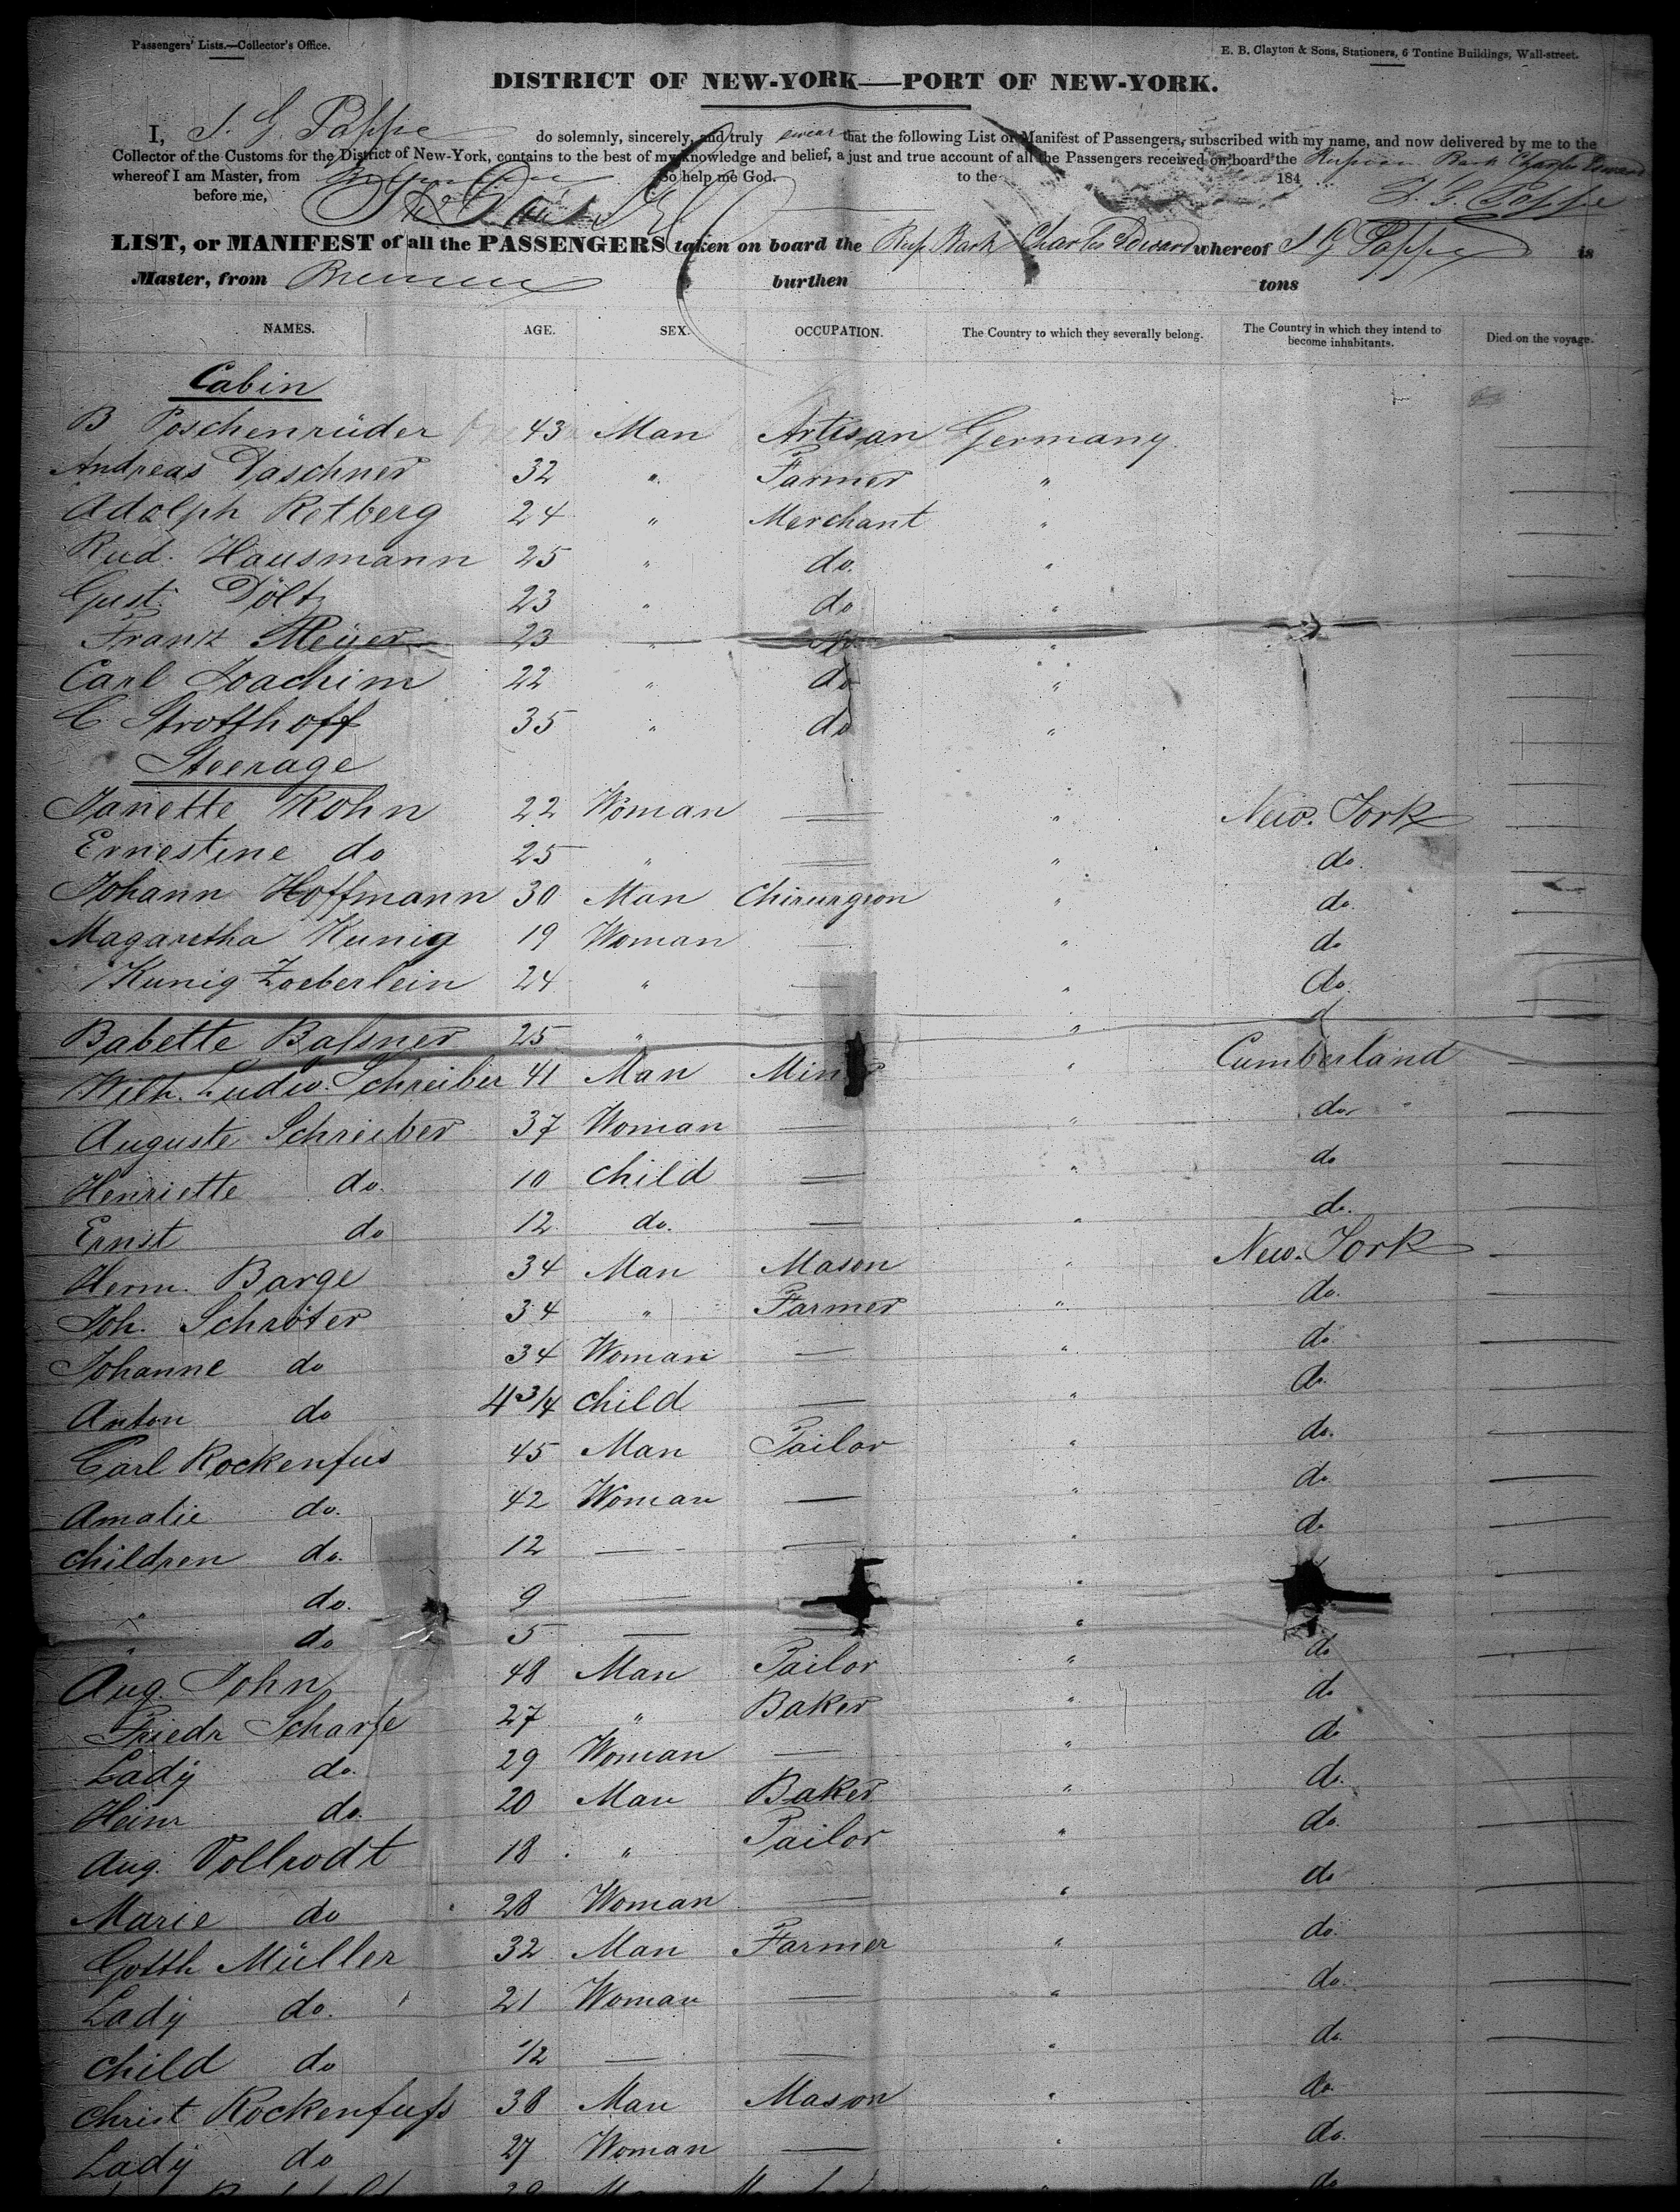 Passengers' Lists.—Collector's Office.
E. B. Clayton & Sons, Stationers, 6 Tontine Buildings, Wall-street.
DISTRICT OF NEW-YORK—PORT OF NEW-YORK.
I, J. G. Poppe do solemnly, sincerely, and truly swear that the following List or Manifest of Passengers, subscribed with my name, and now delivered by me to the
Collector of the Customs for the District of New-York, contains to the best of my knowledge and belief, a just and true account of all the Passengers received on board the Bark Charles Edward
whereof I am Master, from So help me God. to the 184
before me, J. G. Poppe
LIST, or MANIFEST of all the PASSENGERS taken on board the Bark Charles Edward whereof J G Poppe is
Master, from Bremen burthen tons
NAMES. AGE. SEX. OCCUPATION. The Country to which they severally belong. The Country in which they intend to become inhabitants. Died on the voyage.
Cabin
B Poschenrüder 43 Man Artisan Germany
Andreas Daschner 32 " Farmer "
Adolph Retberg 24 " Merchant "
Rud. Hausmann 25 " do. "
Gust. Döltz 23 " do "
Frantz Meÿer 23 " do "
Carl Joachim 22 " do "
C Strotthoff 35 " do "
Steerage
Janette Kohn 22 Woman — " New. York
Ernestine do 25 " — " do.
Johann Hoffmann 30 Man Chirurgion " do.
Magaretha Kunig 19 Woman — " do
Kunig Zoeberlein 24 " — " do.
Babette Baſsner 25 " "
Wilh. Ludw. Schreiber 41 Man Miner " Cumberland
Auguste Schreiber 37 Woman — " do.
Henriette do. 10 child — " do
Ernst do 12 do. — " do.
Herm. Barge 34 Man Mason " New. York
Joh. Schröter 34 " Farmer " do.
Johanne do 34 Woman — " do.
Anton do 4 3/4 child — " do.
Carl Rockenfus 45 Man Tailor " do.
Amalie do. 42 Woman — " do
children do. 12 — — " do
" do. 9 — "
" do 5 — — "
Aug. John 48 Man Tailor " do
Friedr Scharfe 27 " Baker " do
Ladÿ do. 29 Woman — " do
Heinr do. 20 Man Baker " do.
Aug. Vollrodt 18 " Tailor " do.
Marie do 28 Woman — " do
Gotth Müller 32 Man Farmer " do.
Ladÿ do. 21 Woman — " do.
child do 1/2 — — " do.
Christ Rockenfuſs 38 Man Mason " do.
Ladÿ do 27 Woman — " do.